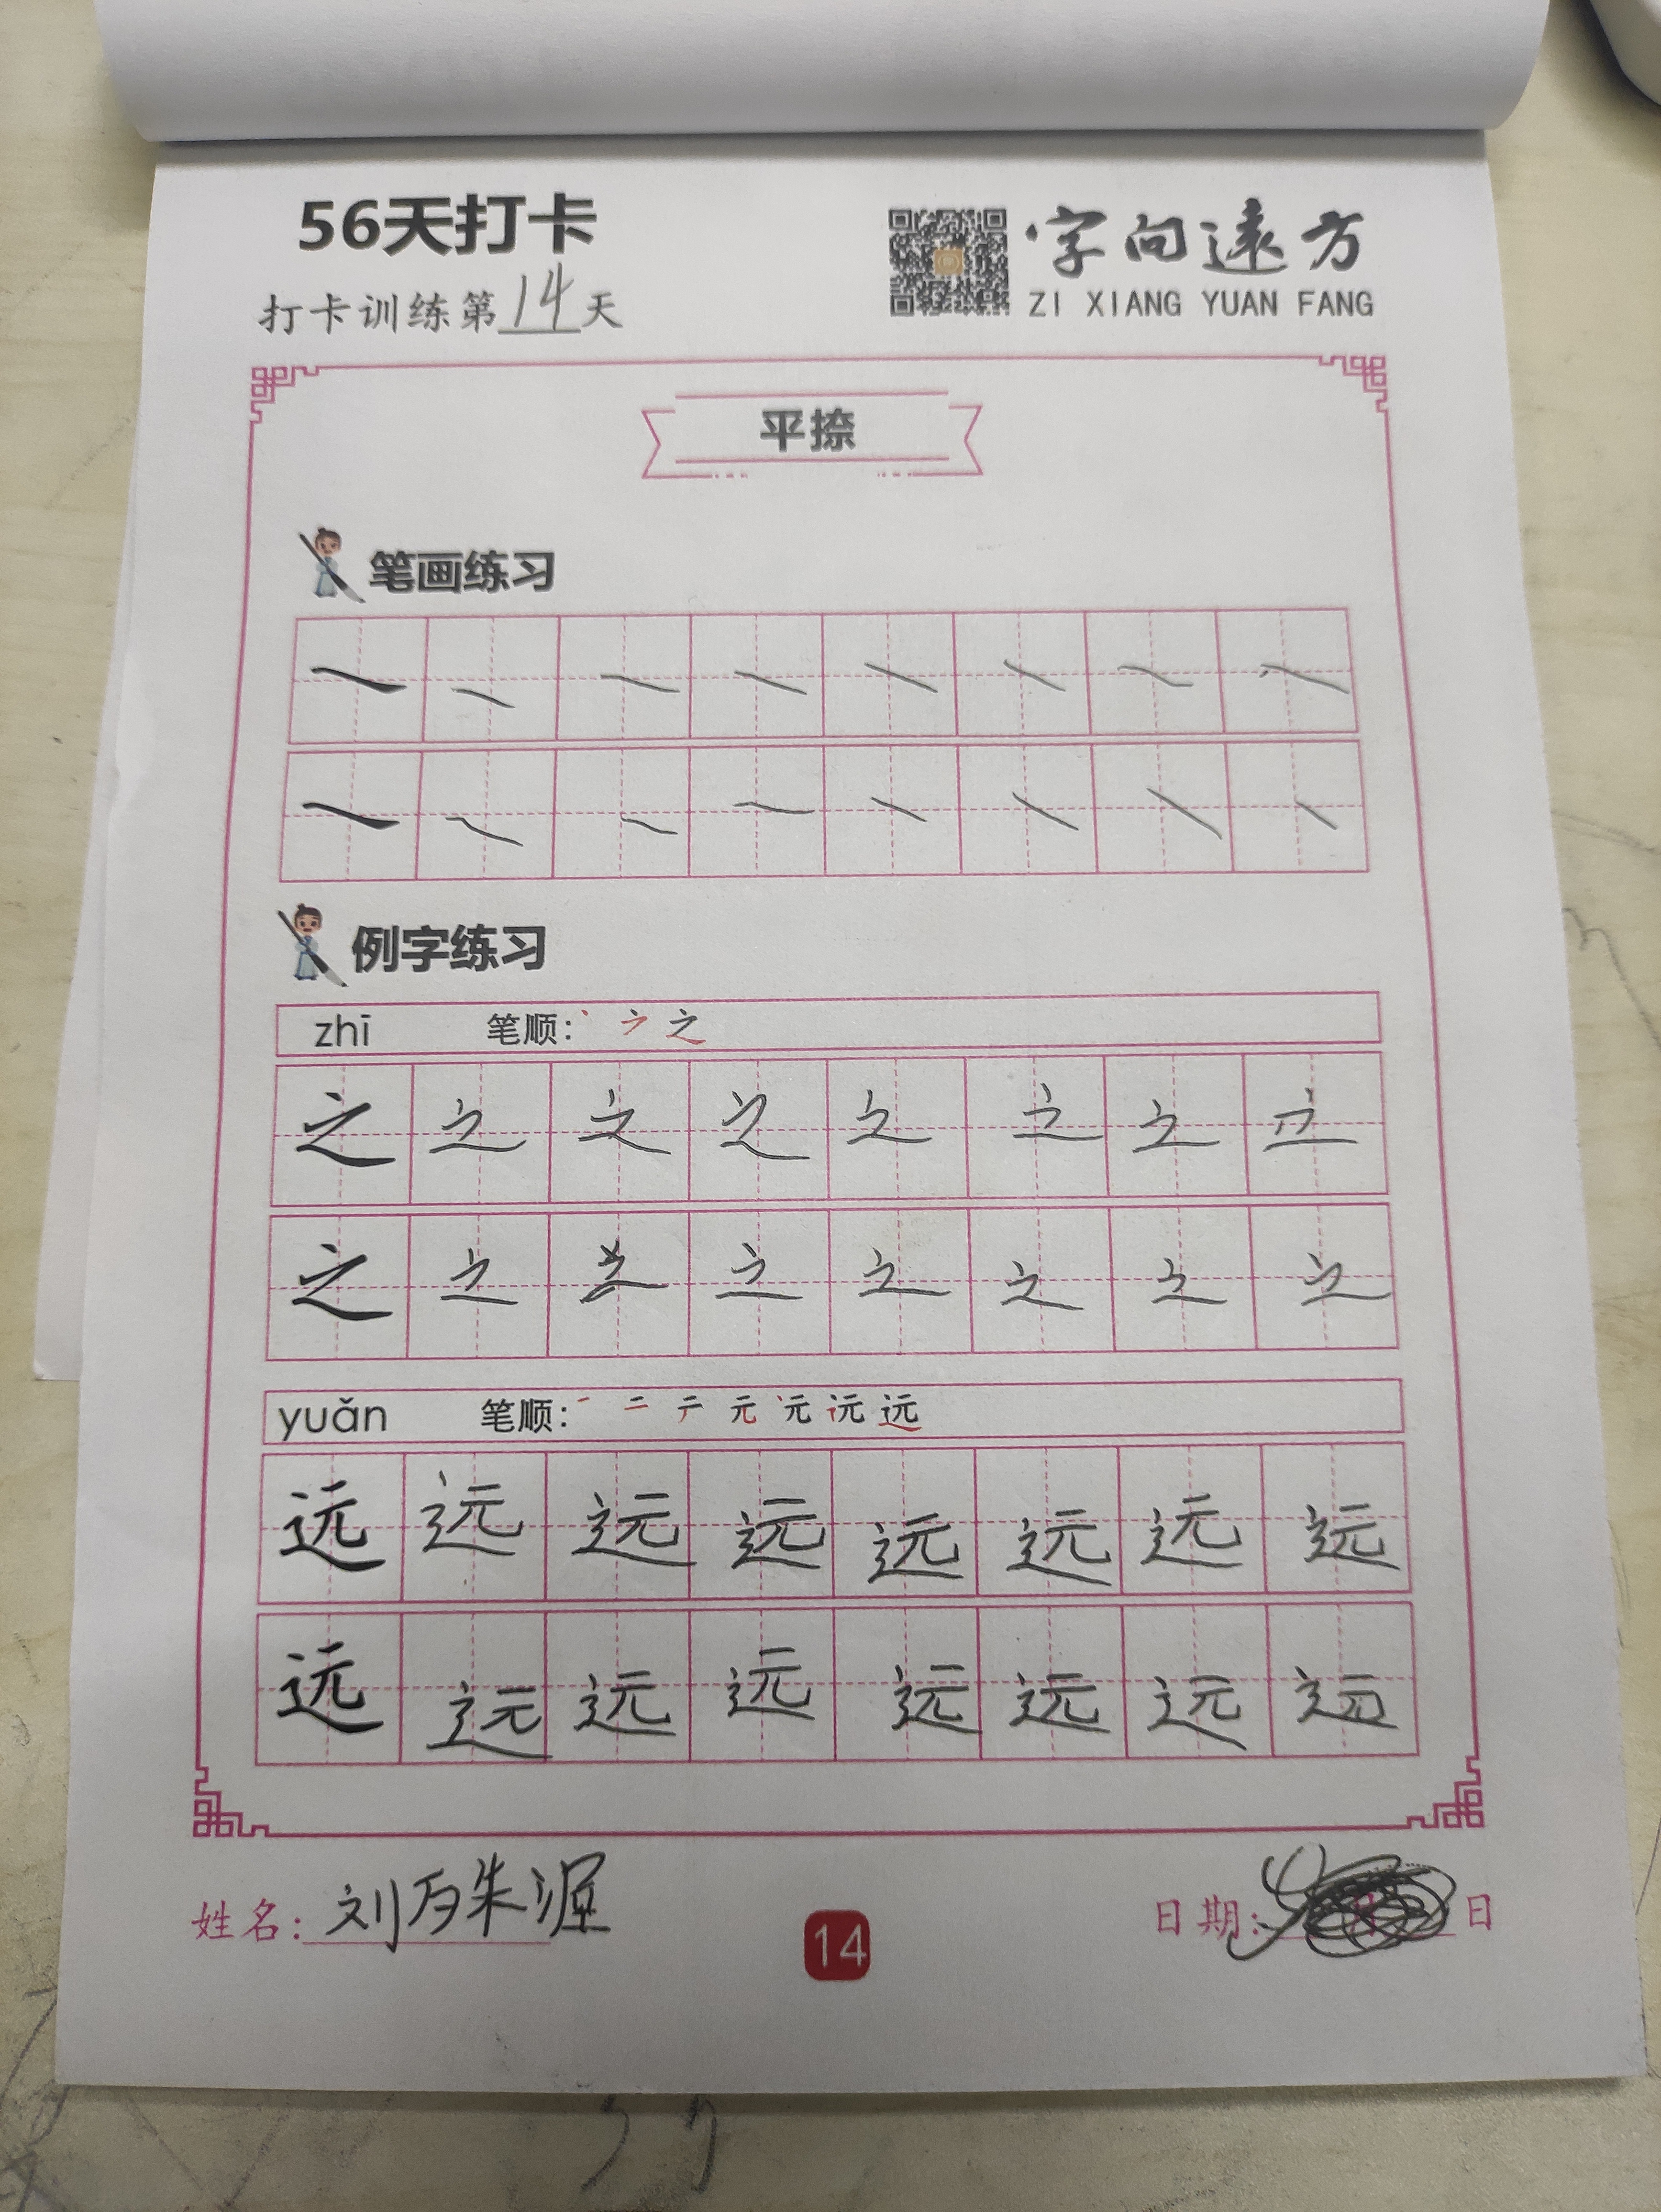 56天打卡
字向遠方
打卡训练第14天
ZI XIANG YUAN FANG
平捺
笔画练习
例字练习
zhī 笔顺:
之 之 之 之 之 之 之 之
之 之 之 之 之 之 之
yuǎn 笔顺: 一 二 テ 元 远
远 远 远 远 远 远 远 远
远 远 远 远 远 远 远 远
姓名: 刘
14
日期: 日